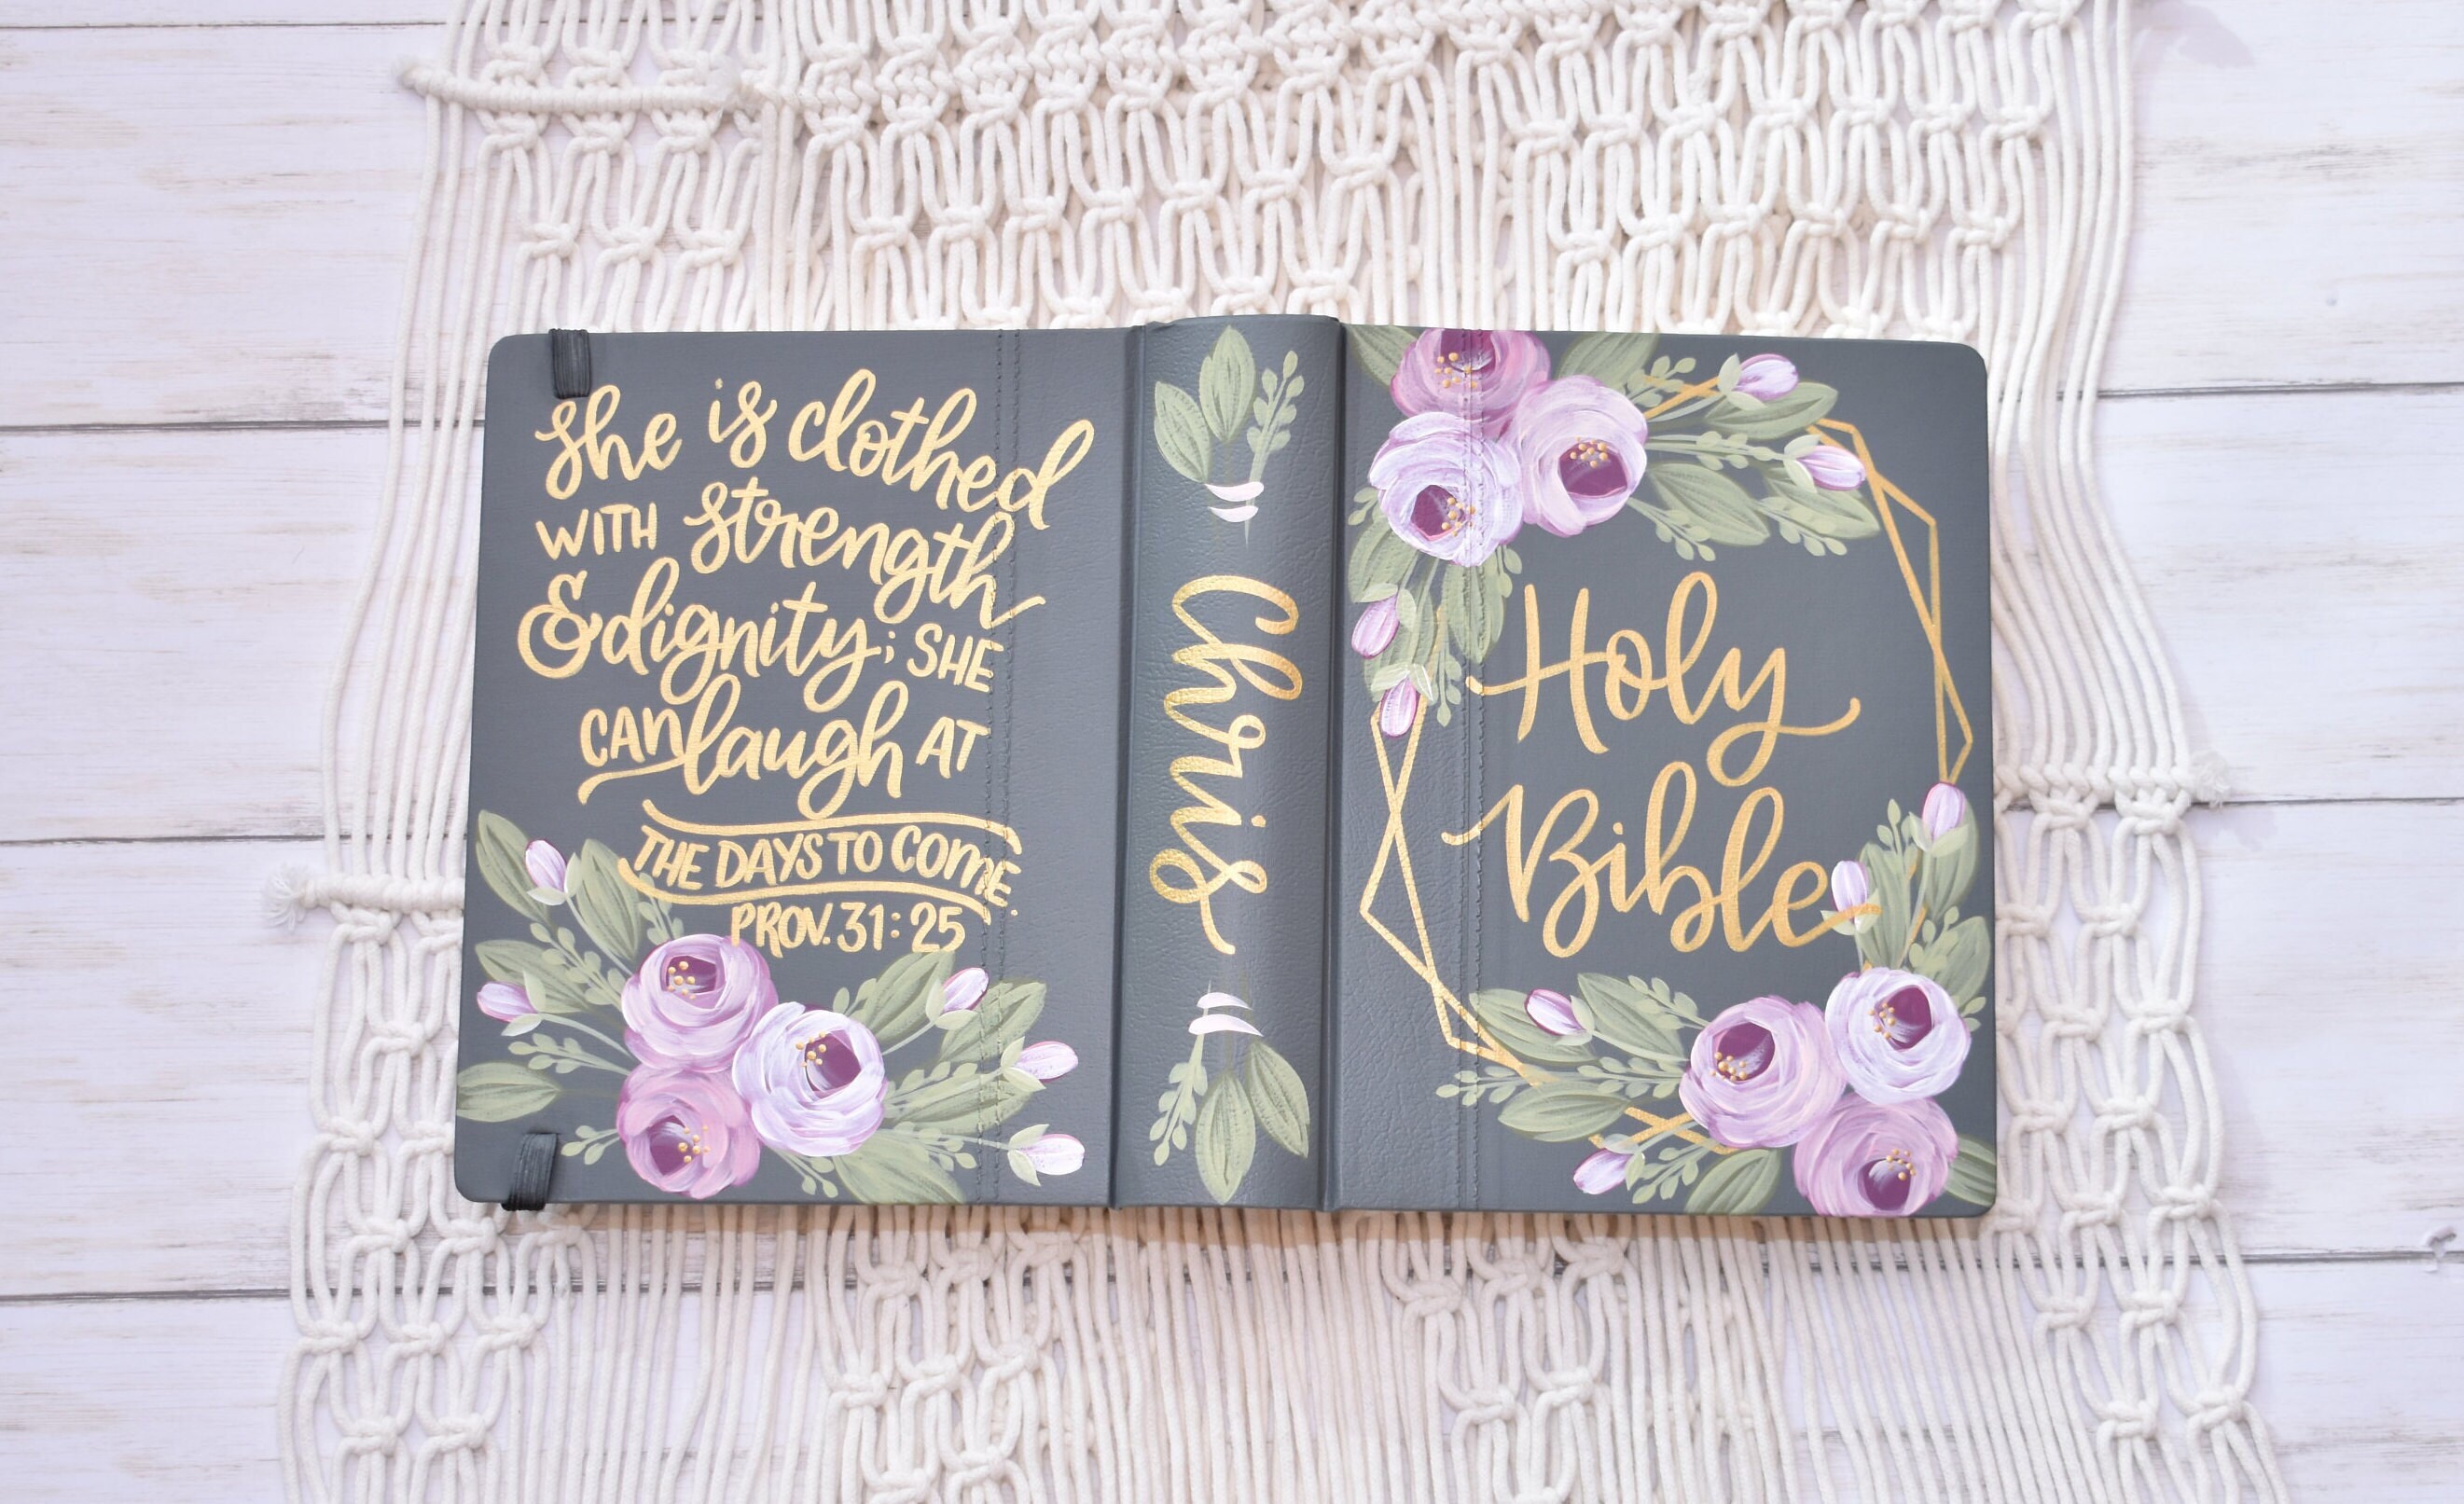 She is clothed
WITH strength
& dignity; SHE
CAN laugh AT
THE DAYS TO COME.
PROV. 31:25
Chris
Holy
Bible